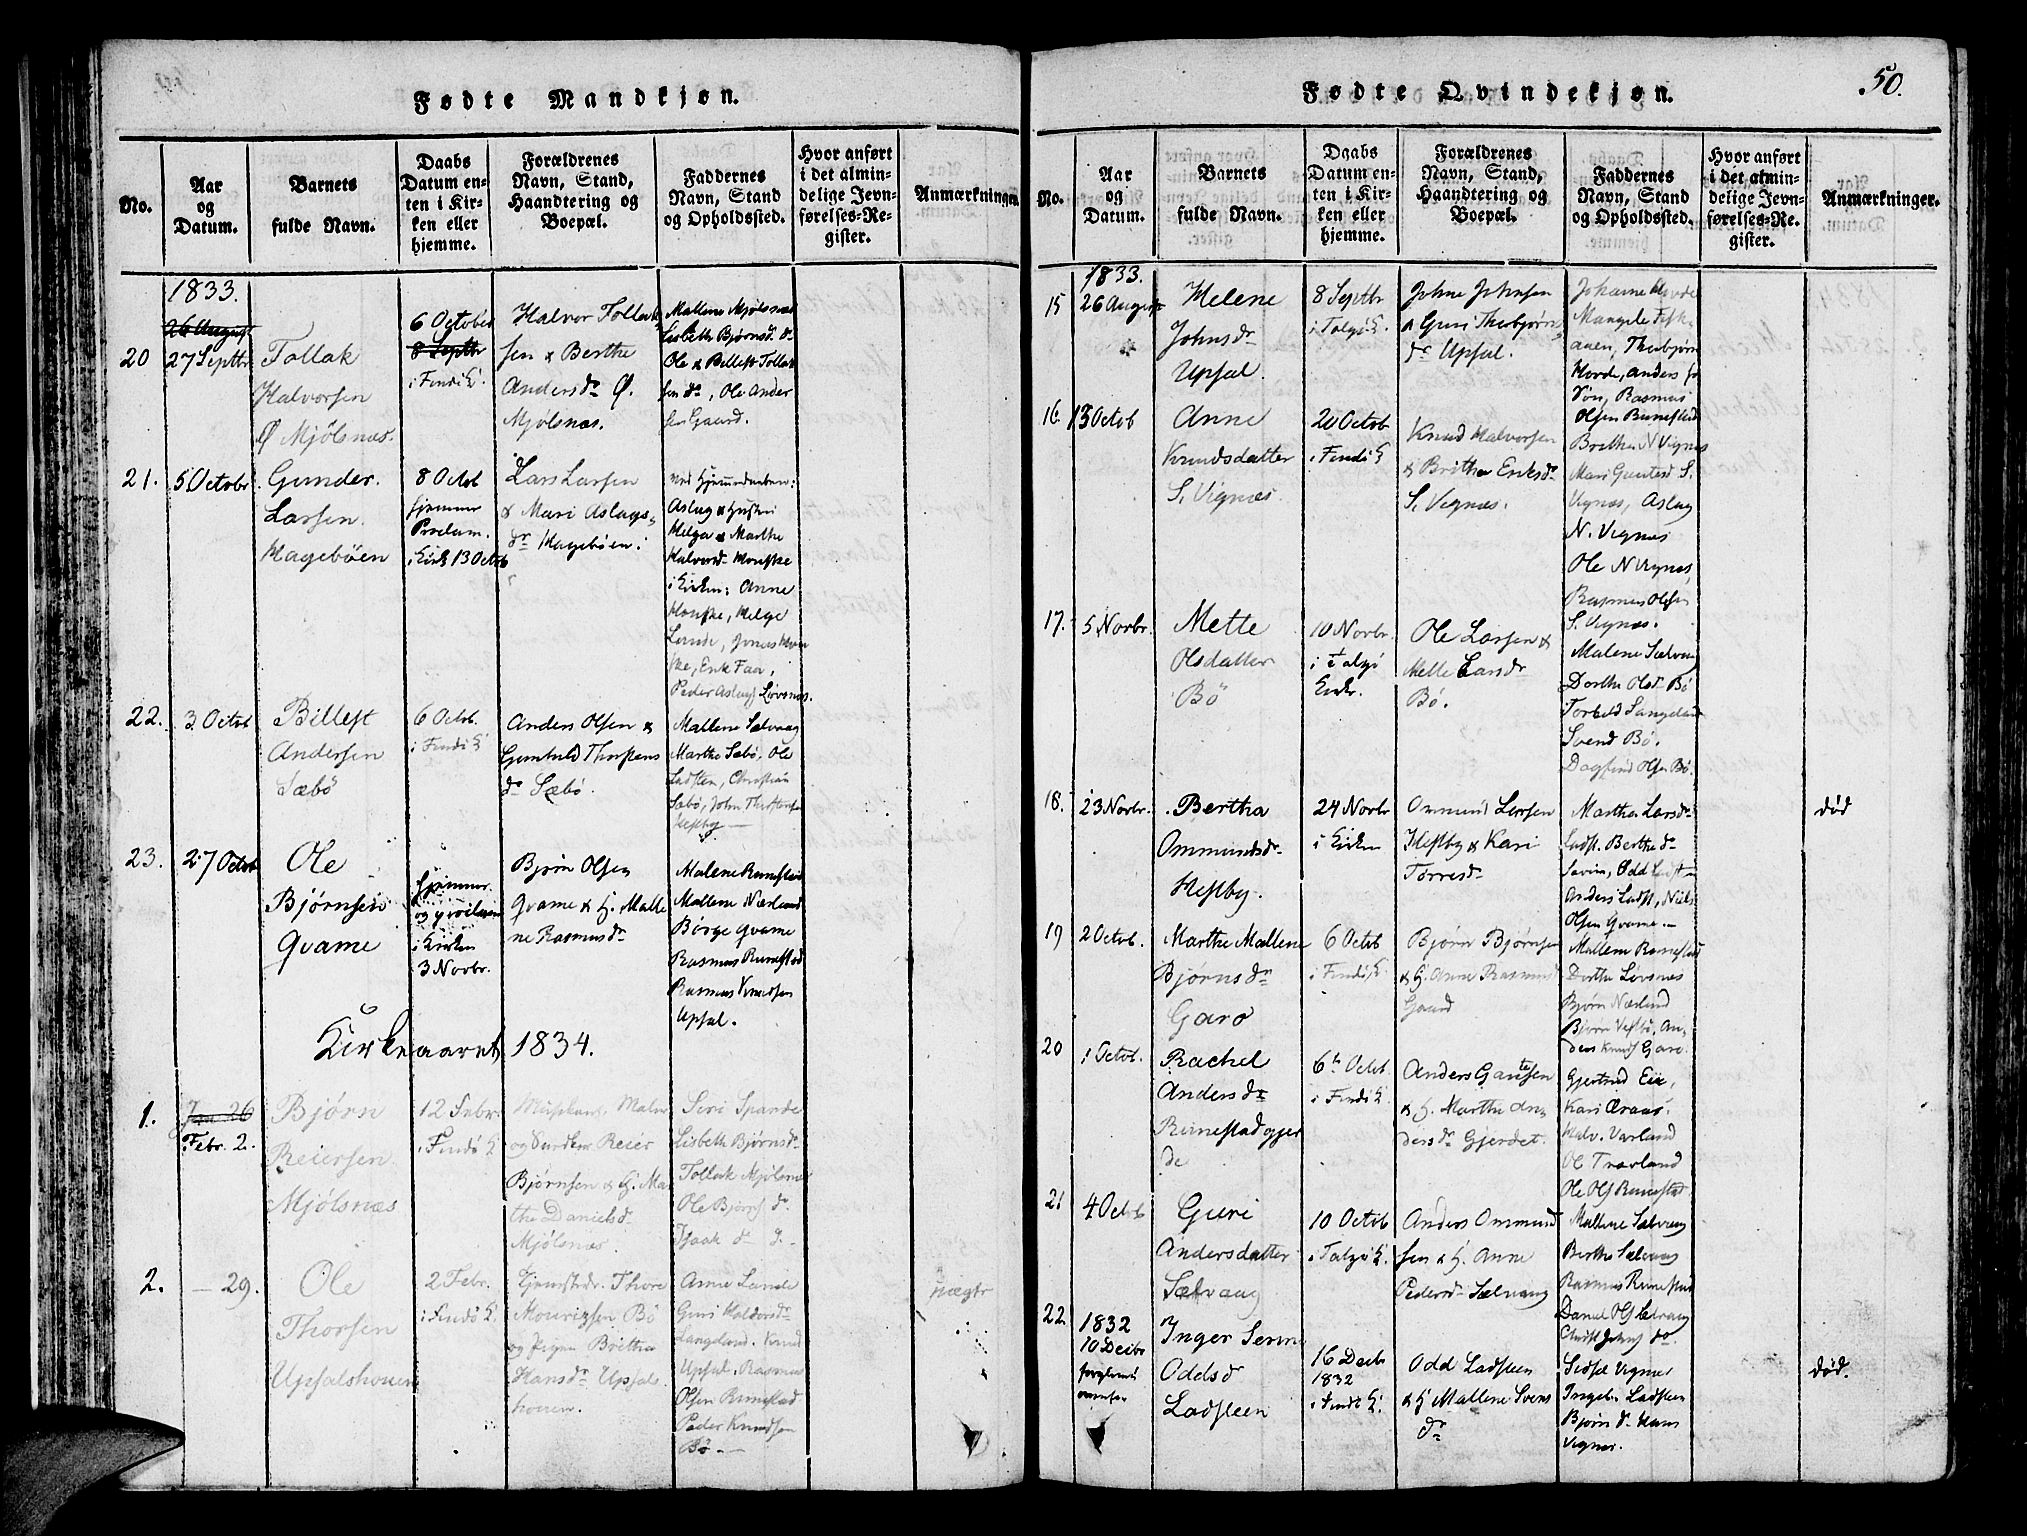 50.
Fødte Mandkjøn.
No.
Aar
og
Datum.
Barnets
fulde Navn.
Daabs
Datum en-
ten i Kir-
ken eller
hjemme.
Forældrenes
Navn, Stand,
Haandtering og
Boepæl.
Faddernes
Navn, Stand
og Opholdssted.
Hvor anført
i det almin-
delige Jevn-
førelses-Re-
gister.
Anmærkninger.
1833.
20
26 August
27 Septbr
Tollak
Halvorsen
Ø Mjölsnæs.
6 October
8 Septbr
i Findö K.
Halvor Tollak
sen & Berthe
Anders dr Ø.
Mjölsnæs.
Mallene Mjölsnæs
Lisbeth Bjørnsd. do
Ole & Billest Tollak
sen do, Ole Ander
sen Gaard.
21.
5 Octobr.
Gunder
Larsen
Hagebøen
8 Octob
hjemme
Proclam.
i Kirk 13 Octob
Lars Larsen
& Mari Aslags
dr Hagebøen.
ved Hjemmedaaben:
Aslag &
Helga & Marthe
Halvorsd.
i Kirken: Anne
Helge
Lunde, Jonas
Erik Faa,
Peder Aslags
22.
3 Octob
Billest
Andersen
Sæbö
6 Octb.
i Findö K
Anders Olsen &
Gunhild Thorstens
dr Sæbö.
Mallene Sælvaag
Marthe Sæbö, Ole
Ladsten, Christian
Sæbö, John Thorstensen
Hestby
23.
27 Octob
Ole
Bjørnsen
Qvame
hjemme
i Kirken
3 Novbr.
Bjørn Olsen
Qvame & H. Malle
ne Rasmusdr
Malene Runestad
Mallene Nærland
Børge Qvame
Rasmus Runestad
Rasmus Knudsen
Upsal.
Kirkeaaret 1834.
1.
Jan 26
Febr. 2.
Bjørn
Reiersen
Mjølsnæs
12 Febr.
i Findö K
Reier
Bjørnsen & H. Mar
the Danielsd.
Mjølsnæs.
Siri Spande
Lisbeth Bjørnsdr
Tollak Mjölsnæs
Ole Bjørns do
Isaak do
2.
- 29.
Ole
Thorsen
Upsalshouen
2 Febr.
i Findö K.
Thore
Mouritzen Bö
og Pigen Britha
Hansdr Upsals
houen.
Anne Lunde
Guri Haldorsdr
Langeland. Knud
Upsal, Rasmus
Olsen Runestad
Peder Knudsen
Bö
uægte
Fødte Qvindekjøn.
No.
Aar
og
Datum.
Barnets
fulde Navn.
Daabs
Datum en-
ten i Kir-
ken eller
hjemme.
Forældrenes
Navn, Stand,
Haandtering og
Boepæl.
Faddernes
Navn, Stand
og Opholdssted.
Hvor anført
i det almin-
delige Jevn-
førelses-Re-
gister.
Anmærkninger.
1833.
15
26 August
Helene
Johnsdr
Upsal.
8 Septbr
i Talgö K.
John Johnsen
& Guri Thorbjørns
dr Upsal.
Johanne Hovde
Thorbjørn
Hovde, Anders
Rasmus
16.
13 Octob
Anne
Knudsdatter
S. Vignæs.
20 Octob
i Findö K
Knud Halvorsen
& Britha Eriksdr
S. Vignæs.
Olsen Runestad
Britha N Vignæs
Mari S.
Vignæs, Aslag
N. Vignæs
Ole N Vignæs,
Rasmus Olsen
S. Vignæs.
17.
5 Novbr.
Mette
Olsdatter
Bö
10 Novbr.
i Talgö
Kirke.
Ole Larsen &
Mette Larsdr
Bö.
Malene Sælvaag
Dorthe Olsdr Bö
Svend Bö.
Dagfind Olsen Bö.
18.
23 Novbr.
Bertha
Ommundsdr
Hestby.
24 Novbr
i Kirken
Ommund Larsen
Hestby & Kari
Torresdr
Martha Larsdr
Ladst. Berthe do
Odd Ladst
Anders Ladst, Niels
Olsen Qvame.
død
19
2 Octob.
Marthe Mallene
Bjørnsdr
Garö
6 Octob
i Findö K.
Bjørn Bjørnsen
& H. Anne Rasmusd
Gaard
Mallene Runestad
Dorthe
Bjørn Nærland
Bjørn Vestbö, An-
ders Knuds Garö.
20
1 Octob.
Rachel
Andersdr
Runestadgjer
de
6te Octob
i Findö K.
Anders Gautesen
& H. Marthe An
dersdr Gjerdet.
Gjertrud Eie,
Kari
Halv. Varland
Ol Traoland
Ole Ols Runestad
21
4 Octob
Guri
Andersdatter
Sælvaag
10 Octob
i Talgö K.
Anders Ommund
sen & H. Anne
Pedersdr Sælvaag
Mallene Sælvaag
Berthe Sælvaag
Rasmus Runestad
Daniel Ols Sælvaag
Christ Johns do
22.
1832
10 Decbr
Inger Serine
Oddsd
Ladsteen
16 Decbr
1832
i Findö K.
Odd Ladsteen
& H Mallene Svens
dr
Sidsel Vignæs
Ingeb. Ladsteen
Bjørn do Hans
Vignæs.
død.